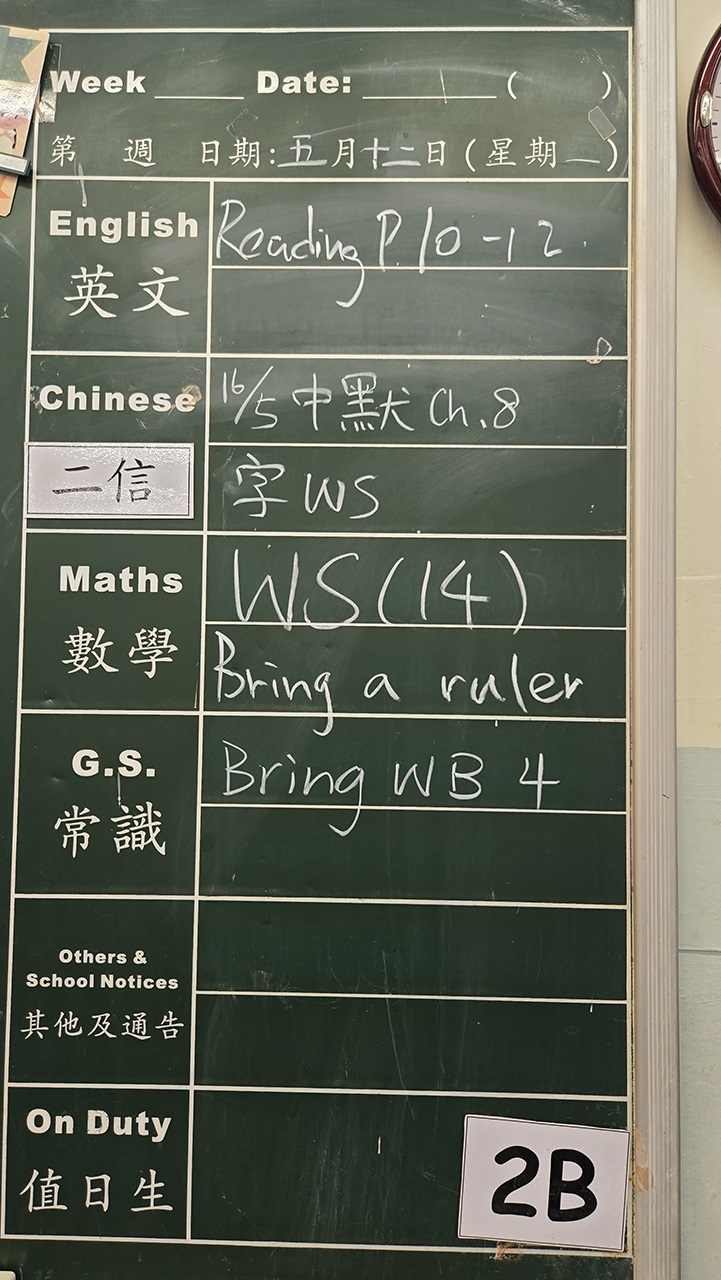 Week ____ Date: ______ ( )
第 週 日期:五月十二日(星期一)
English
Reading P.10-12.
英文
Chinese
16/5 中默 Ch.8
二信
字WS
Maths
WS(14)
數學
Bring a ruler
G.S.
Bring WB 4
常識
Others &
School Notices
其他及通告
On Duty
值日生
2B